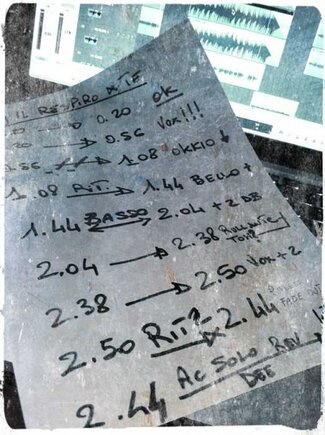 IL RESPIRO X TE
→ 0.20 OK
20 → 0.56 VOX!!!
.56 → 1.08 OKKIO ↓
1.08 RIT. → 1.44 BELLO +
1.44 BASSO 2.04 + 2 DB
2.04 → 2.38
2.38 → 2.50 VOX + 2
2.50 RIT 2.44 FADE OUT
2.44 AC SOLO REV
DEE